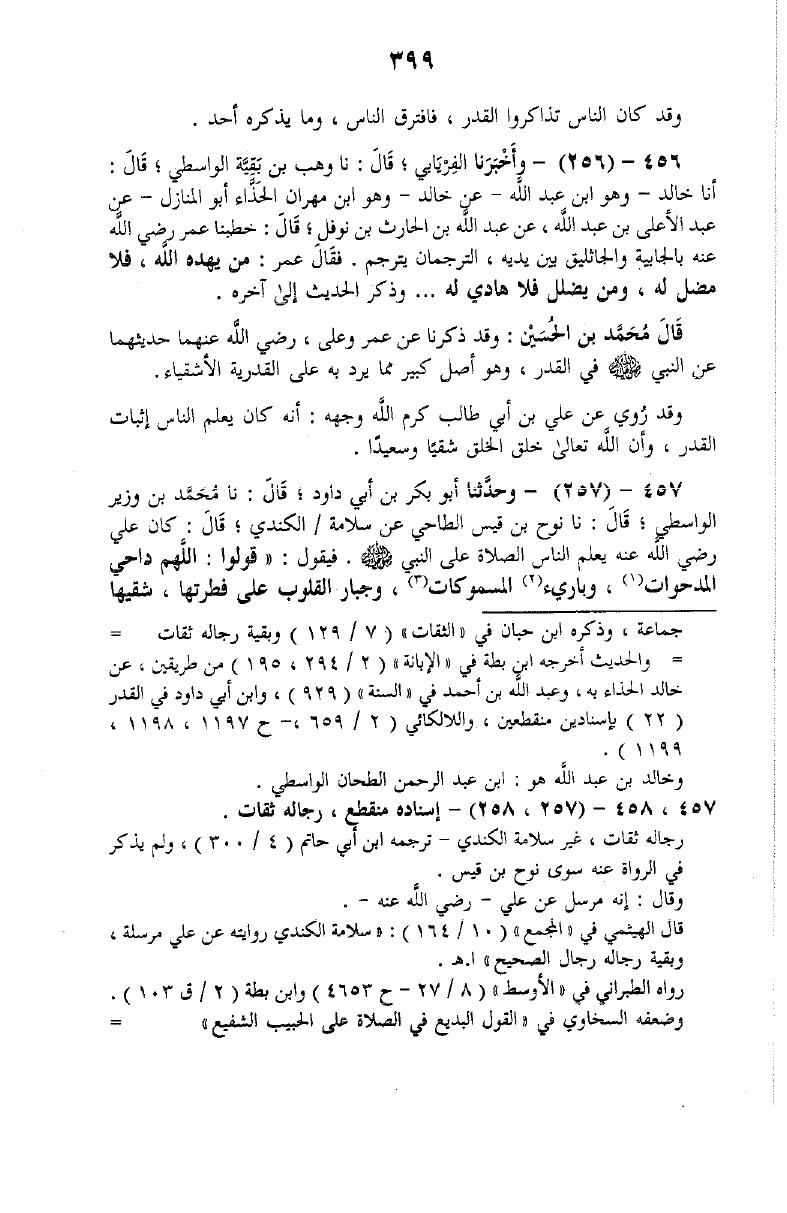 ٣٩٩
وقد كان الناس تذاكروا القدر ، فافترق الناس ، وما يذكره أحد .
٤٥٦ - (٢٥٦) - وأَخْبَرَنا الفِرْيَابي ؛ قَالَ : نا وهب بن بَقِيَّة الواسطي ؛ قَالَ :
أنا خالد - وهو ابن عبد اللَّه - عن خالد - وهو ابن مهران الحَذَّاء أبو المنازل - عن
عبد الأعلى بن عبد اللَّه ، عن عبد اللَّه بن الحارث بن نوفل ؛ قَالَ : خطبنا عمر رضي اللَّه
عنه بالجابية والجاثليق بين يديه ، الترجمان يترجم . فقَالَ عمر : من يهده اللَّه ، فلا
مضل له ، ومن يضلل فلا هادي له ... وذكر الحديث إلىٰ آخره .
قَالَ مُحَمَّد بن الحُسَيْن : وقد ذكرنا عن عمر وعلى ، رضي اللَّه عنهما حديثهما
عن النبي ﷺ في القدر ، وهو أصل كبير مما يرد به على القدرية الأشقياء .
وقد رُوي عن علي بن أبي طالب كرم اللَّه وجهه : أنه كان يعلم الناس إثبات
القدر ، وأن اللَّه تعالىٰ خلق الخلق شقيًا وسعيدًا .
٤٥٧ - (٢٥٧) - وحدَّثنا أبو بكر بن أبي داود ؛ قَالَ : نا مُحَمَّد بن وزير
الواسطي ؛ قَالَ : نا نوح بن قيس الطاحي عن سلامة / الكندي ؛ قَالَ : كان علي
رضي اللَّه عنه يعلم الناس الصلاة على النبي ﷺ . فيقول : « قولوا : اللَّهم داحي
المدحوات(١) ، وباريء(٢) المسموكات(٣) ، وجبار القلوب على فطرتها ، شقيها
جماعة ، وذكره ابن حبان في «الثقات» ( ٧ / ١٢٩ ) وبقية رجاله ثقات =
= والحديث أخرجه ابن بطة في «الإبانة» ( ٢ / ٢٩٤ ، ١٩٥ ) من طريقين ، عن
خالد الحذاء به ، وعبد اللَّه بن أحمد في «السنة» ( ٩٢٩ ) ، وابن أبي داود في القدر
( ٢٢ ) بإسنادين منقطعين ، واللالكائي ( ٢ / ٦٥٩ ،- ح ١١٩٧ ، ١١٩٨ ،
١١٩٩ ) .
وخالد بن عبد اللَّه هو : ابن عبد الرحمن الطحان الواسطي .
٤٥٧ ، ٤٥٨ - (٢٥٧ ، ٢٥٨) - إسناده منقطع ، رجاله ثقات .
رجاله ثقات ، غير سلامة الكندي - ترجمه ابن أبي حاتم ( ٤ / ٣٠٠ ) ، ولم يذكر
في الرواة عنه سوى نوح بن قيس .
وقال : إنه مرسل عن علي - رضي اللَّه عنه - .
قال الهيثمي في «المجمع» ( ١٠ / ١٦٤ ) : «سلامة الكندي روايته عن علي مرسلة ،
وبقية رجاله رجال الصحيح» ا.هـ .
رواه الطبراني في «الأوسط» ( ٨ / ٢٧ - ح ٤٦٥٣ ) وابن بطة ( ٢ / ق ١٠٣ ) .
وضعفه السخاوي في «القول البديع في الصلاة على الحبيب الشفيع» =